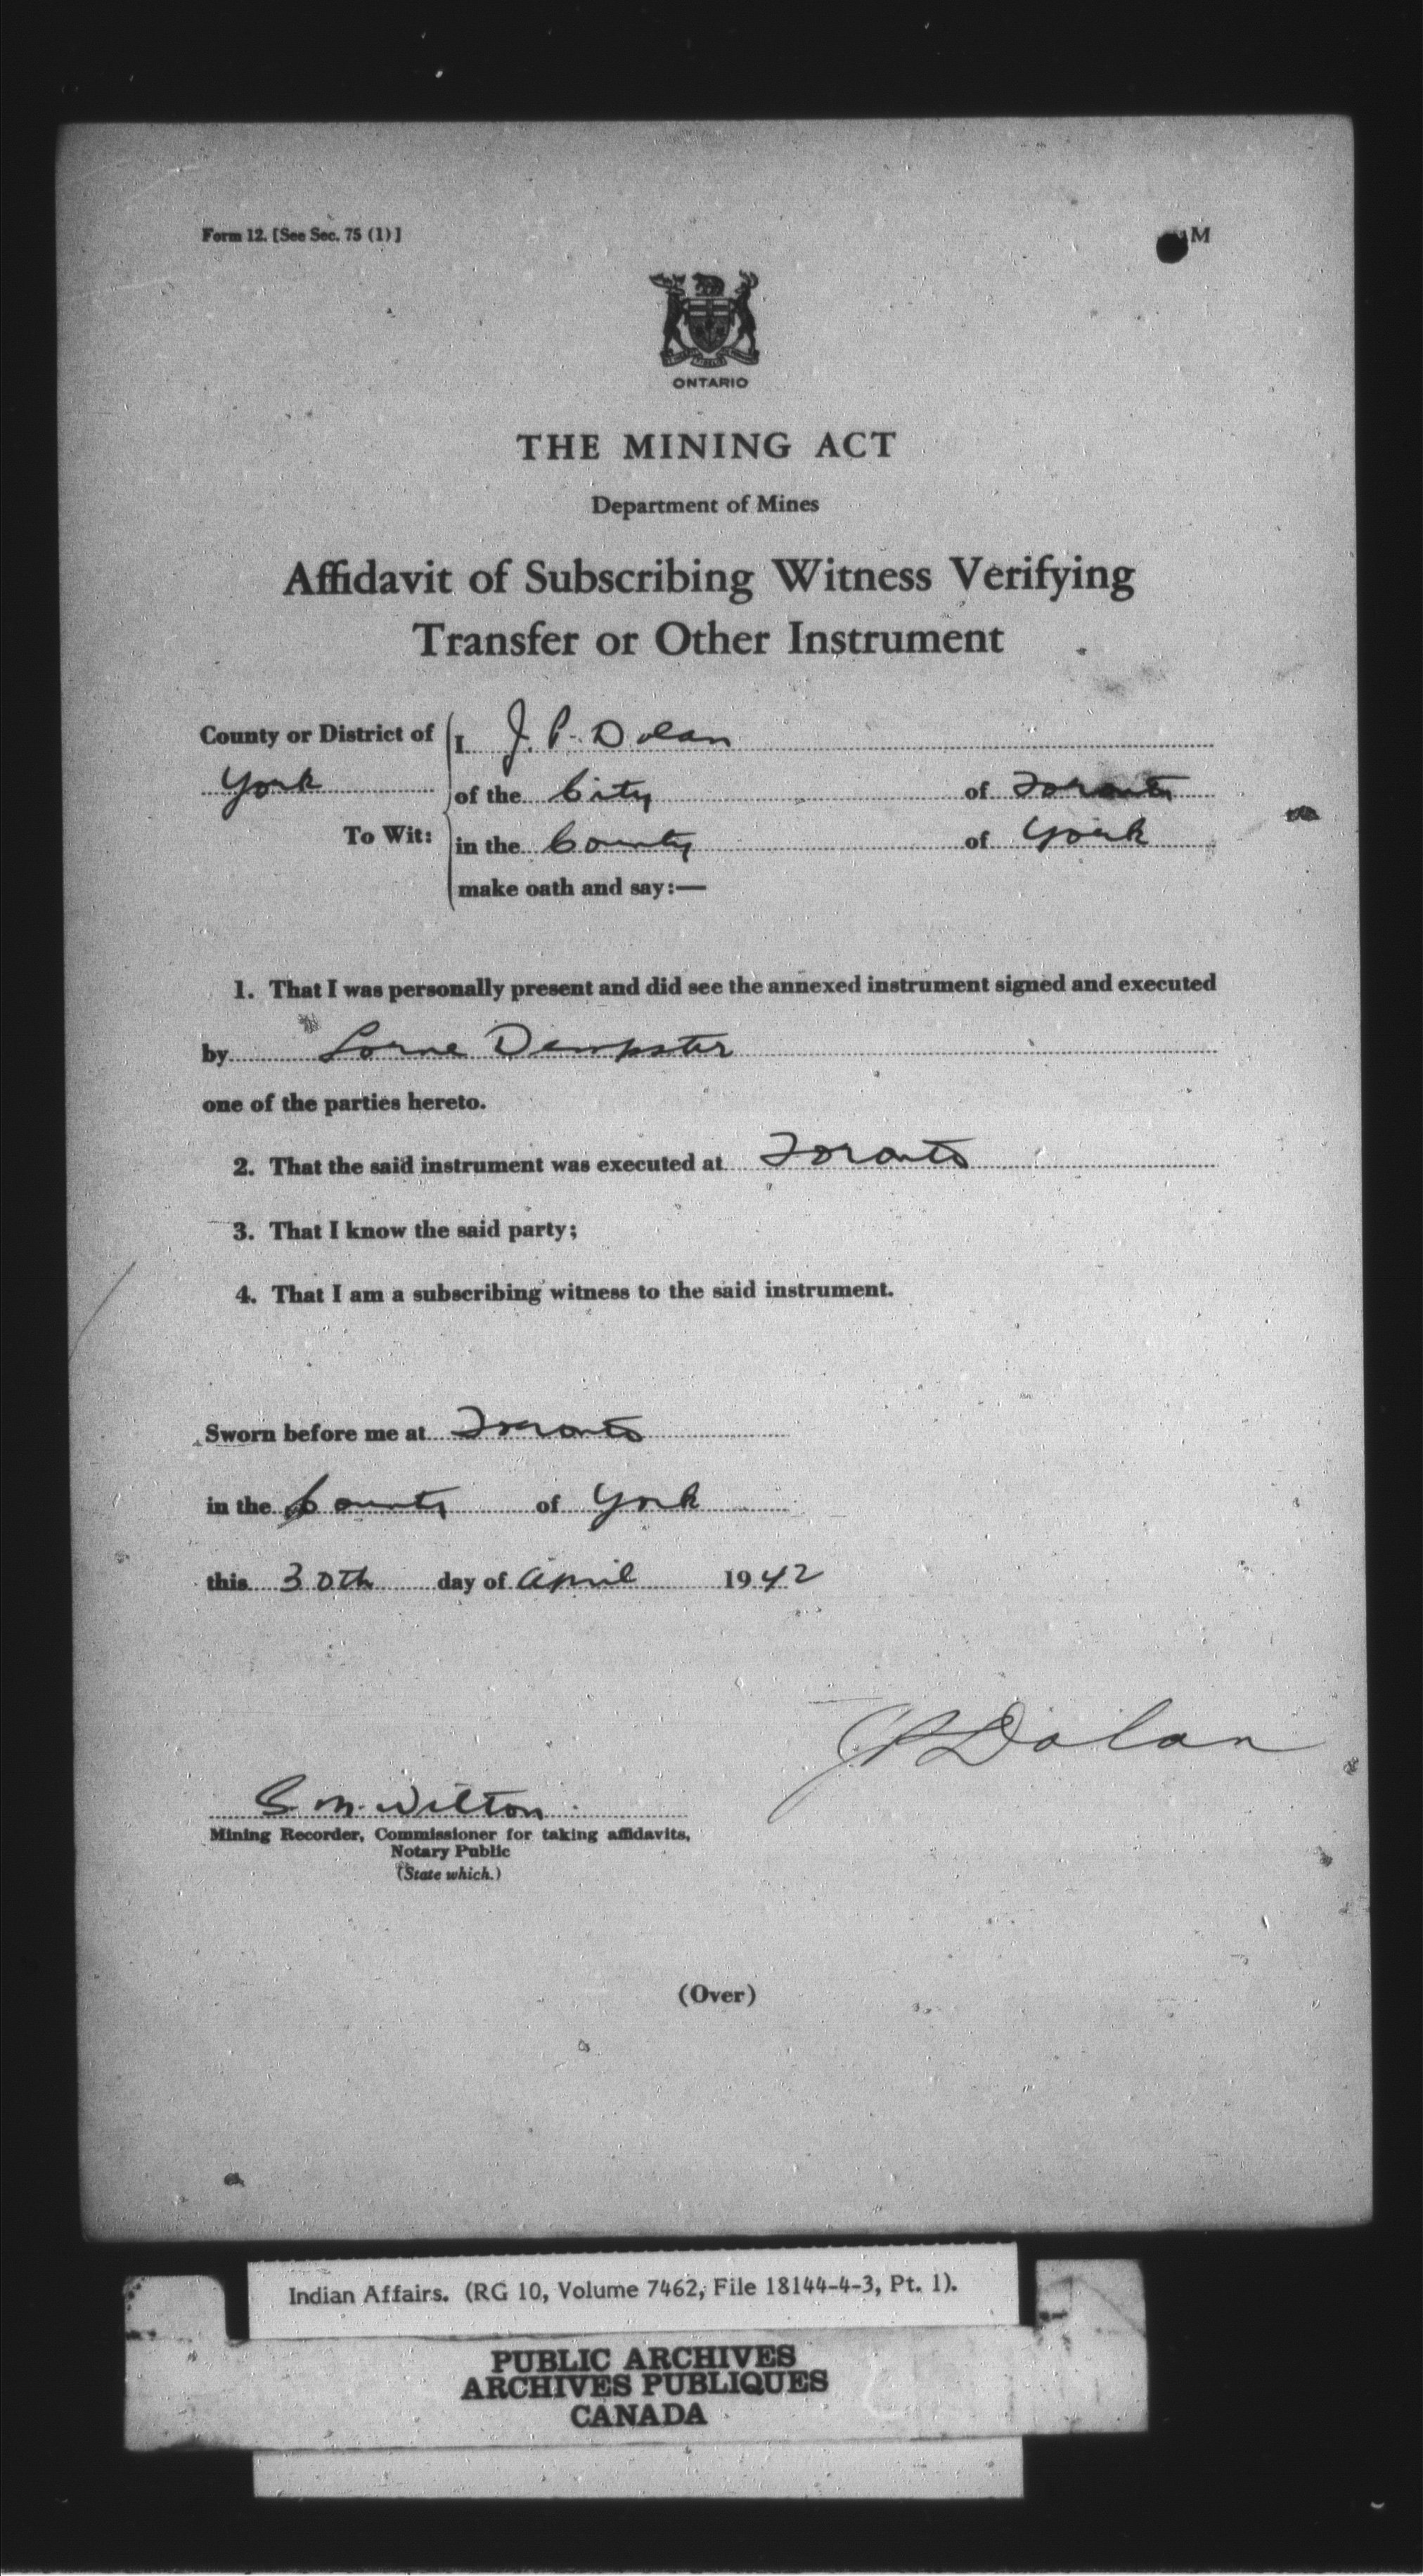 Form 12. [See Sec. 75 (1)]
M
ONTARIO
THE MINING ACT
Department of Mines
Affidavit of Subscribing Witness Verifying
Transfer or Other Instrument
County or District of
York
To Wit:
I J. P. Dolan
of the City of Toronto
in the County of York
make oath and say:—
1. That I was personally present and did see the annexed instrument signed and executed
by Lorne Dempster
one of the parties hereto.
2. That the said instrument was executed at Toronto
3. That I know the said party;
4. That I am a subscribing witness to the said instrument.
Sworn before me at Toronto
in the County of York
this 30th day of April 1942
JP Dolan
S. M. Wilton
Mining Recorder, Commissioner for taking affidavits,
Notary Public
(State which.)
(Over)
Indian Affairs. (RG 10, Volume 7462, File 18144-4-3, Pt. 1).
PUBLIC ARCHIVES
ARCHIVES PUBLIQUES
CANADA